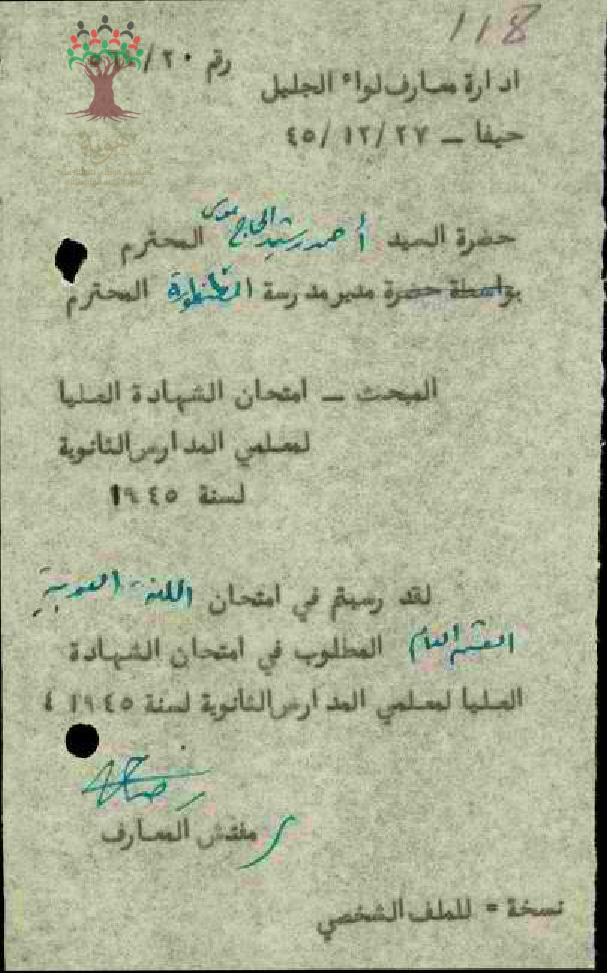 118
رقم ٢٠/
ادارة معارف لواء الجليل
حيفا ــ ٢٧/ ١٢ /٤٥
حضرة السيد أحمد رشيد الحاج موسى المحترم
بواسطة حضرة مدير مدرسة الطنطورة المحترم
المبحث ــ امتحان الشهادة العليا
لمعلمي المدارس الثانوية
لسنة ١٩٤٥
لقد رسبتم في امتحان اللغة العربية
القسم العام المطلوب في امتحان الشهادة
العليا لمعلمي المدارس الثانوية لسنة ١٩٤٥
مفتش المعارف
نسخة = للملف الشخصي